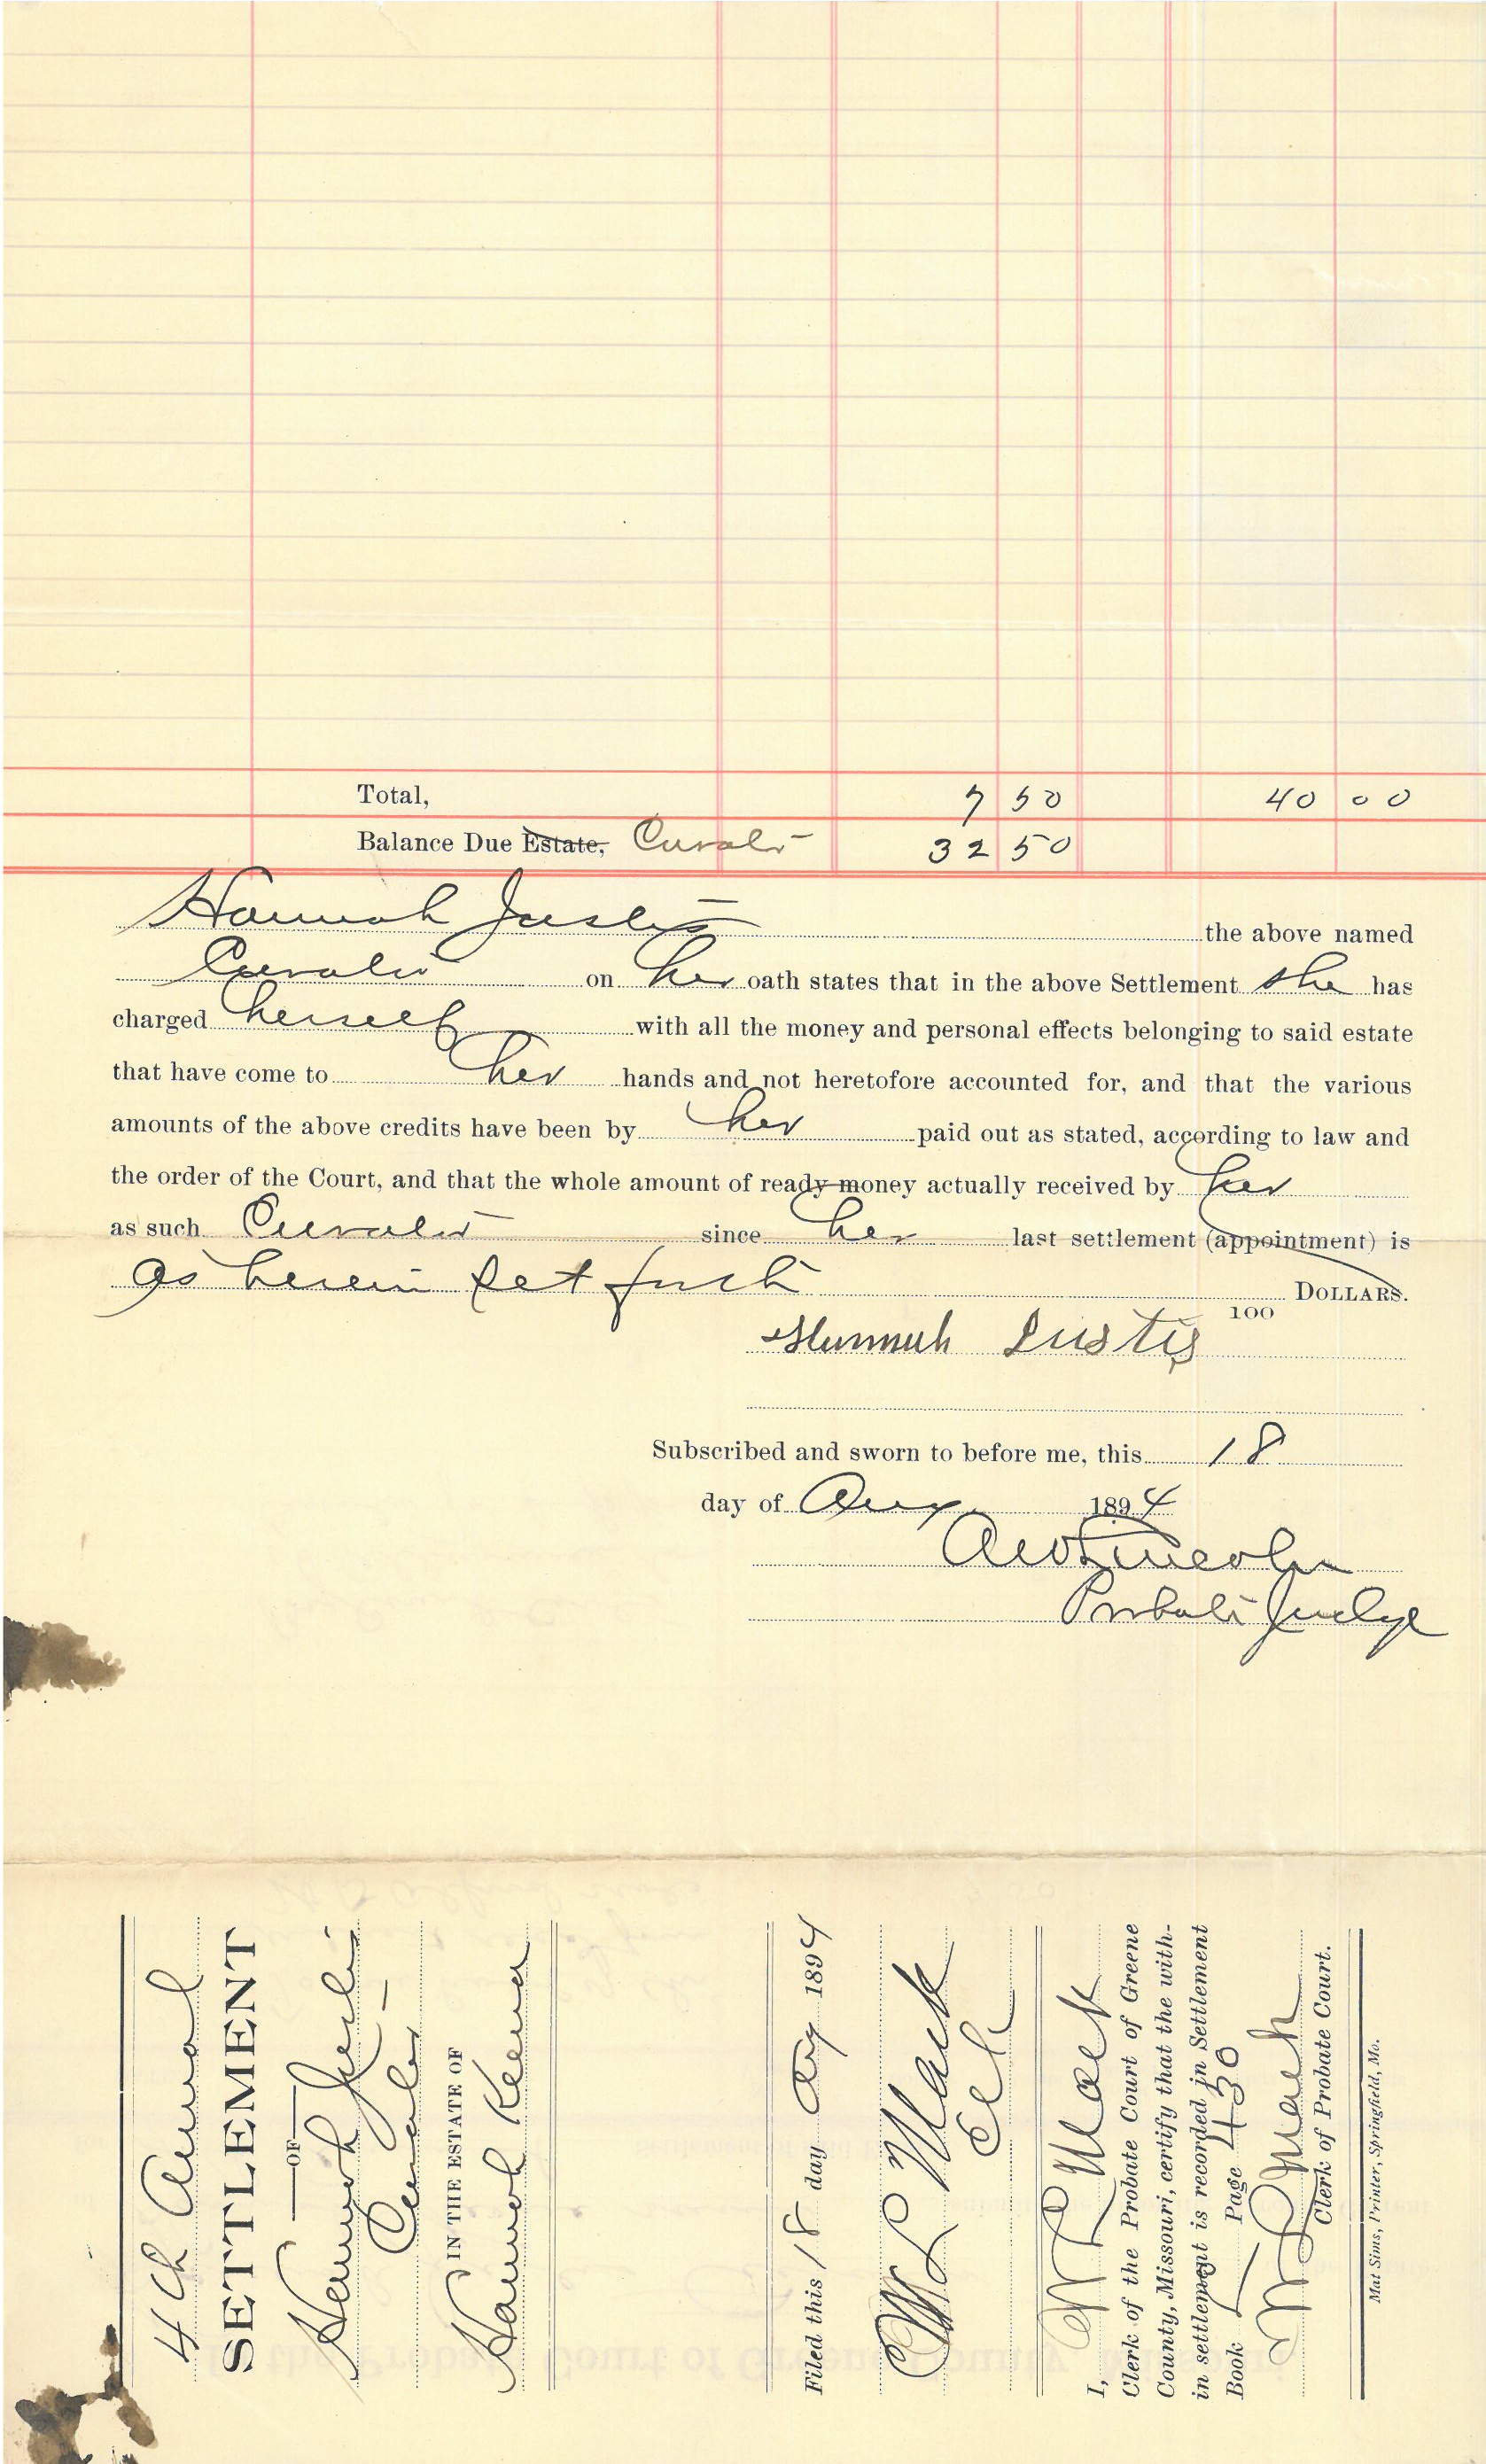 Total, 7 50 40 00
Balance Due Estate, Curator
32 50
Hannah Justis the above named
Curator on her oath states that in the above Settlement she has
charged herself with all the money and personal effects belonging to said estate
that have come to her hands and not heretofore accounted for, and that the various
amounts of the above credits have been by her paid out as stated, according to law and
the order of the Court, and that the whole amount of ready money actually received by her
as such Curator since her last settlement (appointment) is
as herein set forth DOLLARS.
100
Hannah Justis
Subscribed and sworn to before me, this 18
day of Aug. 1894
A W Lincoln
Probate Judge
4th Annual
SETTLEMENT
OF
Hannah Justis
Curator
IN THE ESTATE OF
Hannah
Filed this 18 day Aug 1894
W L Mack
Clk
I, W L Mack
Clerk of the Probate Court of Greene
County, Missouri, certify that the with-
in settlement is recorded in Settlement
Book L Page 430
W L Mack
Clerk of Probate Court.
Mat Sims, Printer, Springfield, Mo.